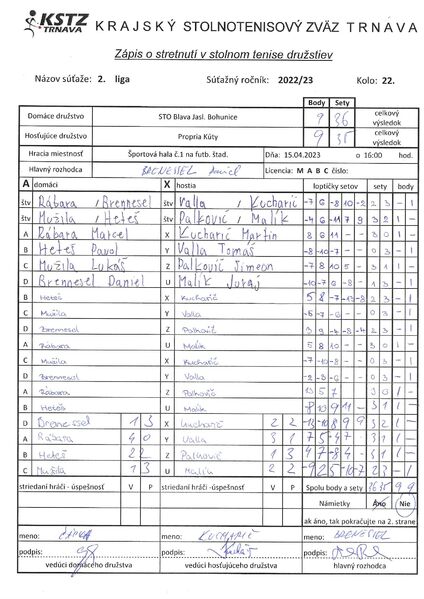 KSTZ TRNAVA KRAJSKÝ STOLNOTENISOVÝ ZVÄZ TRNAVA
Zápis o stretnutí v stolnom tenise družstiev
Názov súťaže: 2. liga Súťažný ročník: 2022/23 Kolo: 22.
Body Sety
Domáce družstvo STO Blava Jasl. Bohunice 9 36 celkový výsledok
Hosťujúce družstvo Propria Kúty 9 35 celkový výsledok
Hracia miestnosť Športová hala č.1 na futb. štad. Dňa: 15.04.2023 o 16:00 hod.
Hlavný rozhodca BRENESSEL Licencia: M A B C číslo:
A domáci X hostia loptičky setov sety body
štv Rábara / Brennesel štv Valla / Kucharič -7 6 -8 10 -2 2 3 - 1
štv Mužila / Heteš štv Palkovič / Malík -4 6 -11 7 9 3 2 1 -
A Rábara Marcel X Kucharič Martin 8 6 11 3 0 1 -
B Heteš Pavol Y Valla Tomáš -8 -10 -7 0 3 - 1
C Mužila Lukáš Z Palkovič Simeon -7 8 10 5 3 1 1 -
D Brennesel Daniel U Malík Juraj -10 -7 6 -8 1 3 - 1
B Heteš X Kucharič 5 8 -7 -13 -8 2 3 - 1
C Mužila Y Valla 0 3 - 1
D Brennesel Z Palkovič 2 3 - 1
A Rábara U Malík 5 8 10 3 0 1 -
C Mužila X Kucharič -7 -10 -8 0 3 - 1
D Brennesel Y Valla 0 3 - 1
A Rábara Z Palkovič 3 0 1 -
B Heteš U Malík -8 10 9 11 3 1 1 -
D Brennesel 1 3 X Kucharič 2 2 3 2 1 -
A Rábara 4 0 Y Valla 3 1 3 1 1 -
B Heteš 2 2 Z Palkovič 1 3 3 1 1 -
C Mužila 1 3 U Malík 2 2 -9 2 5 -10 -7 2 3 - 1
striedaní hráči - úspešnosť V P striedaní hráči - úspešnosť V P Spolu body a sety 36 35 9 9
Námietky Áno Nie
ak áno, tak pokračujte na 2. strane
meno: meno: KUCHARIČ meno: BRENESSEL
podpis: podpis: podpis:
vedúci domáceho družstva vedúci hosťujúceho družstva hlavný rozhodca